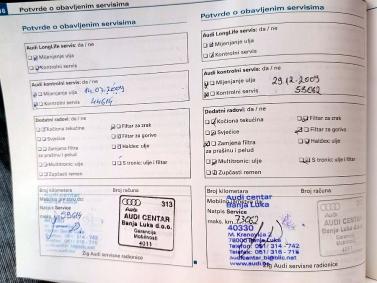 Potvrde o obavljenim servisima
Audi LongLife servis: da / ne
Mijenjanje ulja
Kontrolni servis
Audi kontrolni servis: da / ne
Mijenjanje ulja
Kontrolni servis
Dodatni radovi: da / ne
Kočiona tekućina
Filter za zrak
Svjećice
Filter za gorivo
Zamjena filtra
za prašinu i pelud
Haldex: ulje
Multitronic: ulje
S tronic: ulje i filter
Zupčasti remen
Broj kilometara
Broj računa
Mobilno
Natpis Service
maks. km
Audi
313
AUDI CENTAR
Banja Luka d.o.o.
Garancija
Mobilnosti
4011
Žig Audi servisne radionice
Potvrde o obavljenim servisima
Audi LongLife servis: da / ne
Mijenjanje ulja
Kontrolni servis
Audi kontrolni servis: da / ne
Mijenjanje ulja 29.12.2009
Kontrolni servis
Dodatni radovi: da / ne
Kočiona tekućina
Filter za zrak
Svjećice
Filter za gorivo
Zamjena filtra
za prašinu i pelud
Haldex: ulje
Multitronic: ulje
S tronic: ulje i filter
Zupčasti remen
Broj kilometara
Broj računa
Audi centar
Banja Luka
Natpis Service
maks. km
40330
78000 Banja Luka
Telefon: 051/ 314 - 742
Telefax: 051/ 316 - 716
audicentar_bl@blic.net
www.audi.ba
Žig Audi servisne radionice